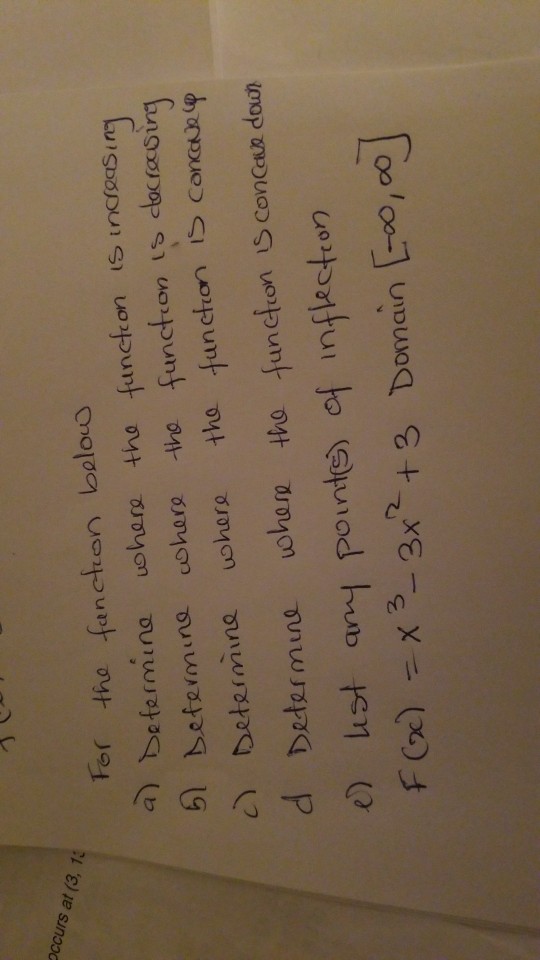 For the function below
a) Determine where the function is increasing
b) Determine where the function is decreasing
c) Determine where the function is concave up
d Determine where the function is concave down
e) list any point(s) of inflection
F(x) = x³ - 3x² + 3 Domain [-∞, ∞]
occurs at (3, 1